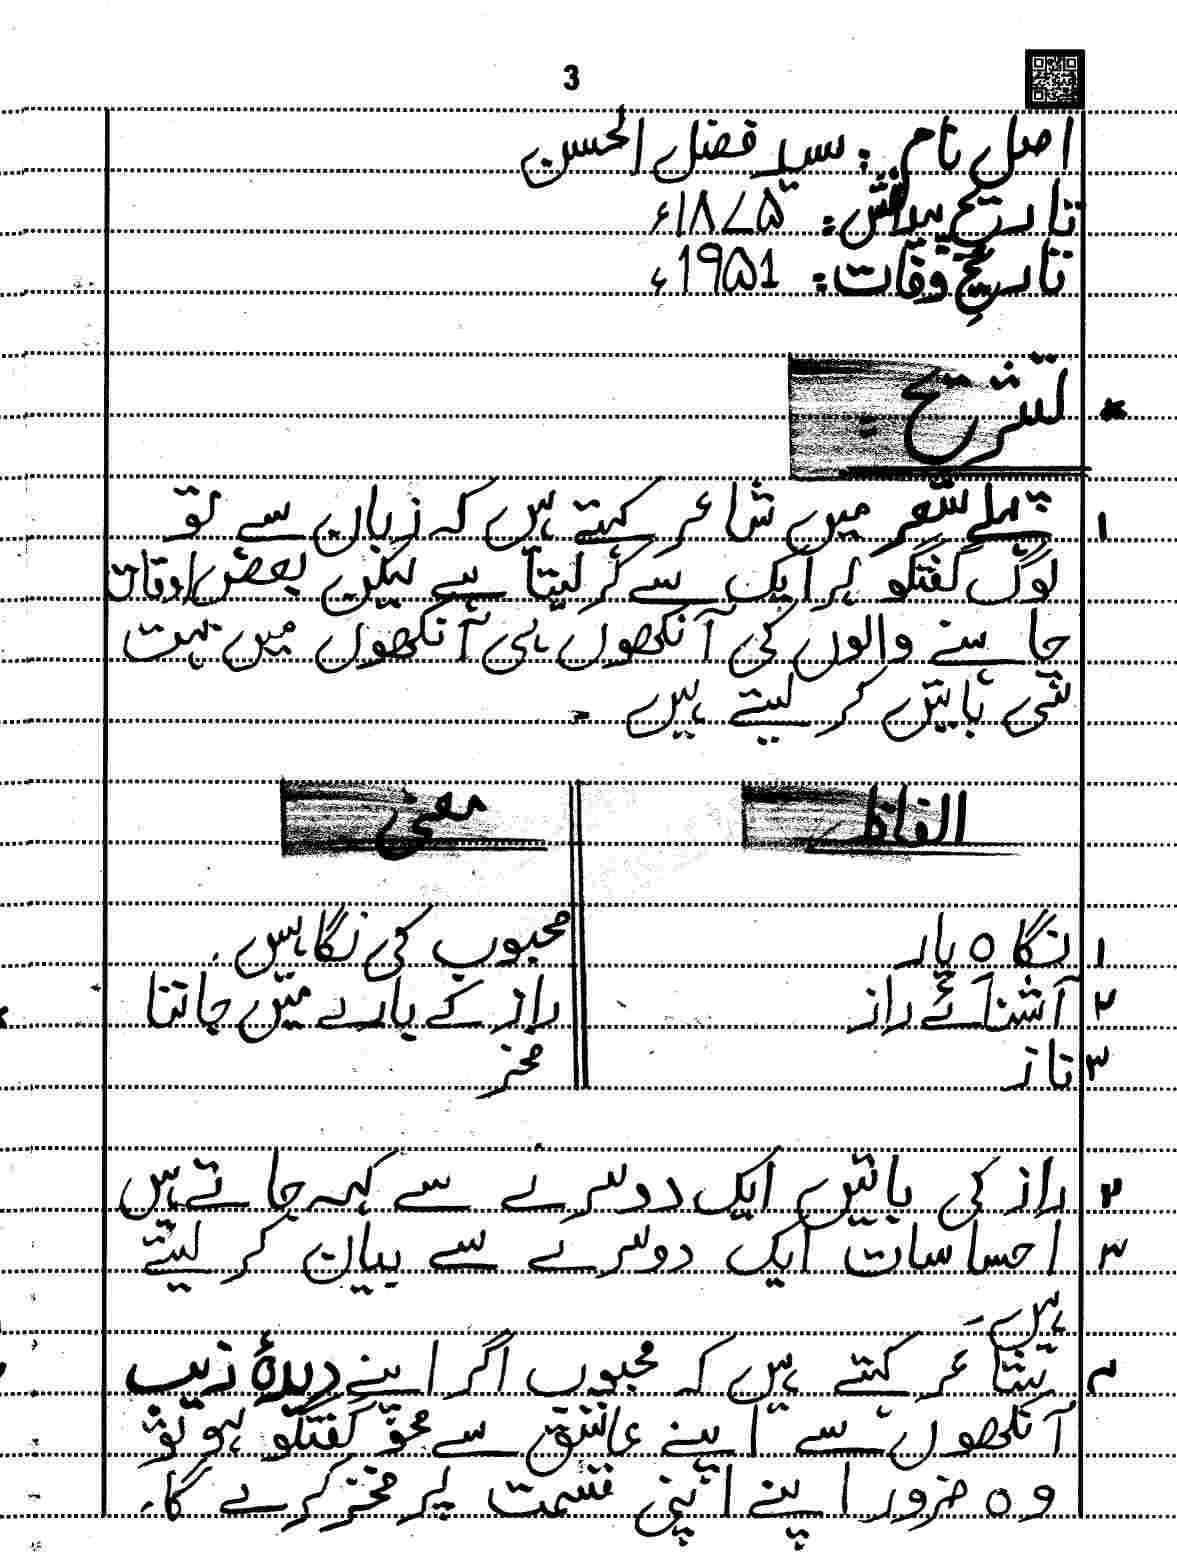 3
اصل نام : سید فضل الحسن
تاریخ پیدائش : ۱۸۷۵ء
تاریخ وفات : ۱۹۵۱ء
* تشریح :
۱ پہلے شعر میں شاعر کہتے ہیں کہ زبان سے تو
لوگ گفتگو ہر ایک سے کر لیتا ہے لیکن بعض اوقات
چاہنے والوں کی آنکھوں ہی آنکھوں میں بہت
سی باتیں کر لیتے ہیں ۔
الفاظ معنی
۱ نگاہ یار محبوب کی نگاہیں ۔
۲ آشنائے راز راز کے بارے میں جاننا
۳ ناز فخر
۲ راز کی باتیں ایک دوسرے سے کہہ جاتے ہیں
۳ احساسات ایک دوسرے سے بیان کر لیتے
ہیں ۔
۴ شاعر کہتے ہیں کہ محبوب اگر اپنے دیدۂ زیب
آنکھوں سے اپنے عاشق سے محو گفتگو ہو تو
وہ ضرور اپنے اپنی قسمت پر فخر کرے گا ۔